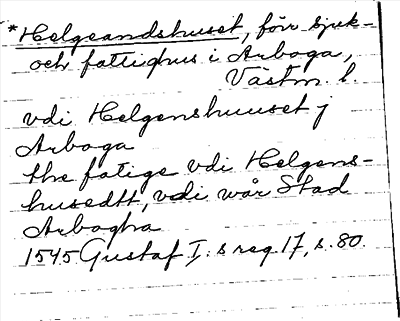 *Helgeandshuset, förr sjuk-
och fattighus i Arboga,
Västm. l.
vdi Helgenshuuset j
Arboga
the fatige vdi Helgens-
husedtt, vdi wår Stad
Arbogha
1545 Gustaf I:s reg 17, s. 80.